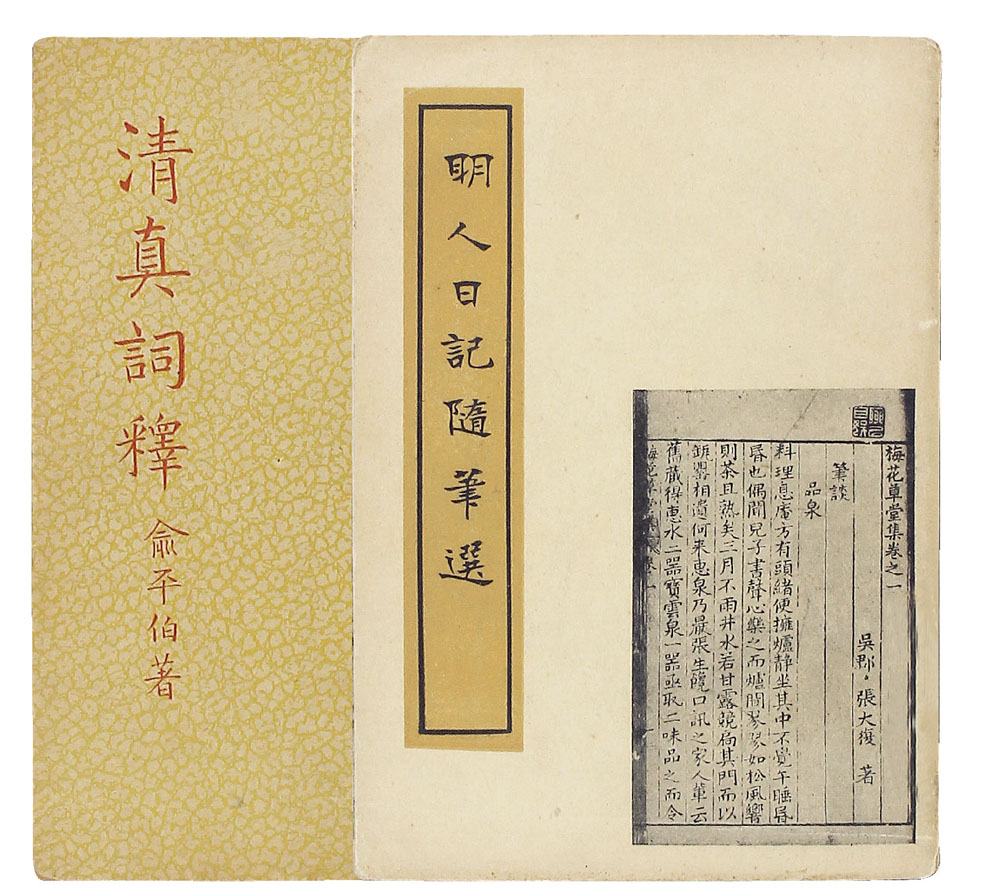 清真詞釋
俞平伯著
明人日記隨筆選
梅花草堂集卷之一
吳郡 張大復 著
筆談
品泉
料理息庵方有頭緒便擁爐靜坐其中不覺午睡昏
昏也偶聞兒子書聲心樂之而爐間翏翏如松風響
則茶且熟矣三月不雨井水若甘露競扃其門而以
缾罌相遺何來惠泉乃厭張生饞口訊之家人輩云
舊藏得惠水二器寶雲泉一器亟取二味品之而令